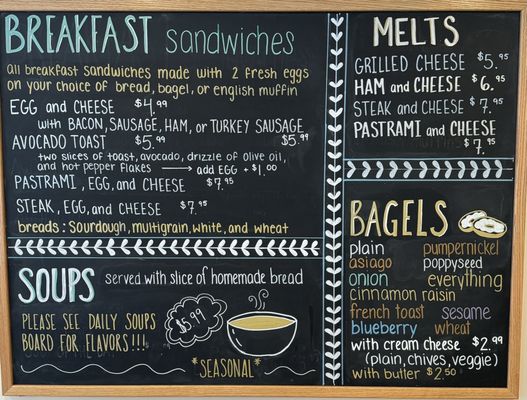 BREAKFAST sandwiches
all breakfast sandwiches made with 2 fresh eggs
on your choice of bread, bagel, or english muffin
EGG and CHEESE $4.99
with BACON, SAUSAGE, HAM, or TURKEY SAUSAGE
AVOCADO TOAST $5.99 $5.99
two slices of toast, avocado, drizzle of olive oil,
and hot pepper flakes → add EGG + $1.00
PASTRAMI, EGG, and CHEESE $7.95
STEAK, EGG, and CHEESE $7.95
breads: sourdough, multigrain, white, and wheat
SOUPS served with slice of homemade bread
PLEASE SEE DAILY SOUPS
BOARD FOR FLAVORS!!!
$5.99
*SEASONAL*
MELTS
GRILLED CHEESE $5.95
HAM and CHEESE $6.95
STEAK and CHEESE $7.95
PASTRAMI and CHEESE
$7.95
BAGELS
plain pumpernickel
asiago poppyseed
onion everything
cinnamon raisin
french toast sesame
blueberry wheat
with cream cheese $2.99
(plain, chives, veggie)
with butter $2.50